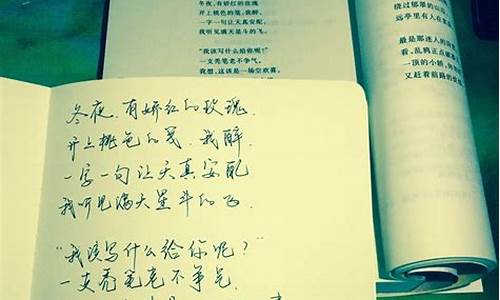 冬夜,有娇红的玫瑰
开上桃色的笺,我醉,
一字一句让天真安配
我听见满天星斗的飞。
“我该写什么给你呢?”
一支秃笔老不争气,
我想,这该是一场空欢喜。
绕过郁翠的山
远亭里有人在
最是那迷人的
看,乱鸦正点破
一顶的小轿,
又赶着前路的
冬夜,有娇红的玫瑰,
开上桃色的笺,我醉,
一字一句让天真安配
我听见满天星斗的飞
“我该写什么给你呢?”
一支秃笔老不争气